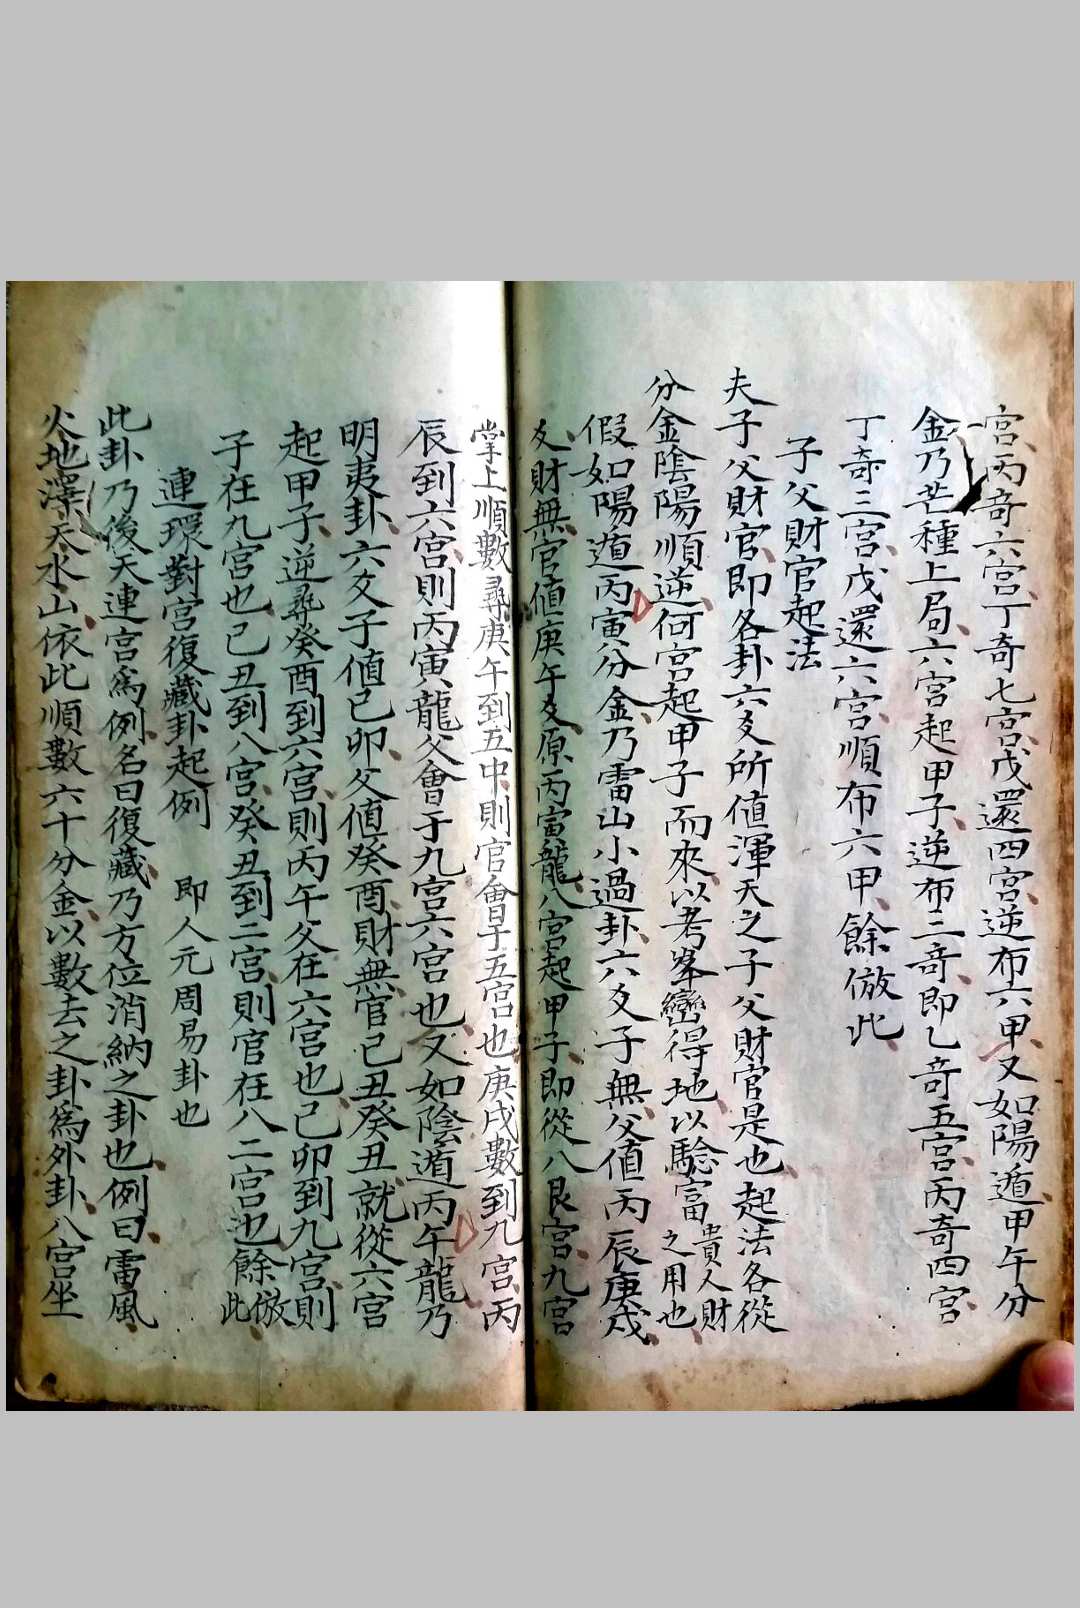 宮丙奇六宮丁奇七宮戊還四宮逆布六甲又如陽遁甲午分
金乃芒種上局六宮起甲子逆布三奇即乙奇五宮丙奇四宮
丁奇三宮戊還六宮順布六甲餘倣此
子父財官起法
夫子父財官即各卦六爻所值渾天之子父財官是也起法各從
分金陰陽順逆何宮起甲子而來以考峯巒得地以驗富貴人財之用也
假如陽遁丙寅分金乃雷山小過卦六爻子無父值丙辰庚戌
爻財無官值庚午爻原丙寅龍八宮起甲子即從八艮宮九宮
掌上順數尋庚午到五中則官會于五宮也庚戌數到九宮丙
辰到六宮則丙寅龍父會于九宮六宮也又如陰遁丙午龍乃
明夷卦六爻子值己卯父值癸酉財無官己丑癸丑就從六宮
起甲子逆尋癸酉到六宮則丙午父在六宮也己卯到九宮則
子在九宮也己丑到八宮癸丑到二宮則官在八二宮也餘倣此
連環對宮復藏卦起例 即人元周易卦也
此卦乃後天連宮為例名曰復藏乃方位消納之卦也例曰雷風
火地澤天水山依此順數六十分金以數去之卦為外卦八宮坐